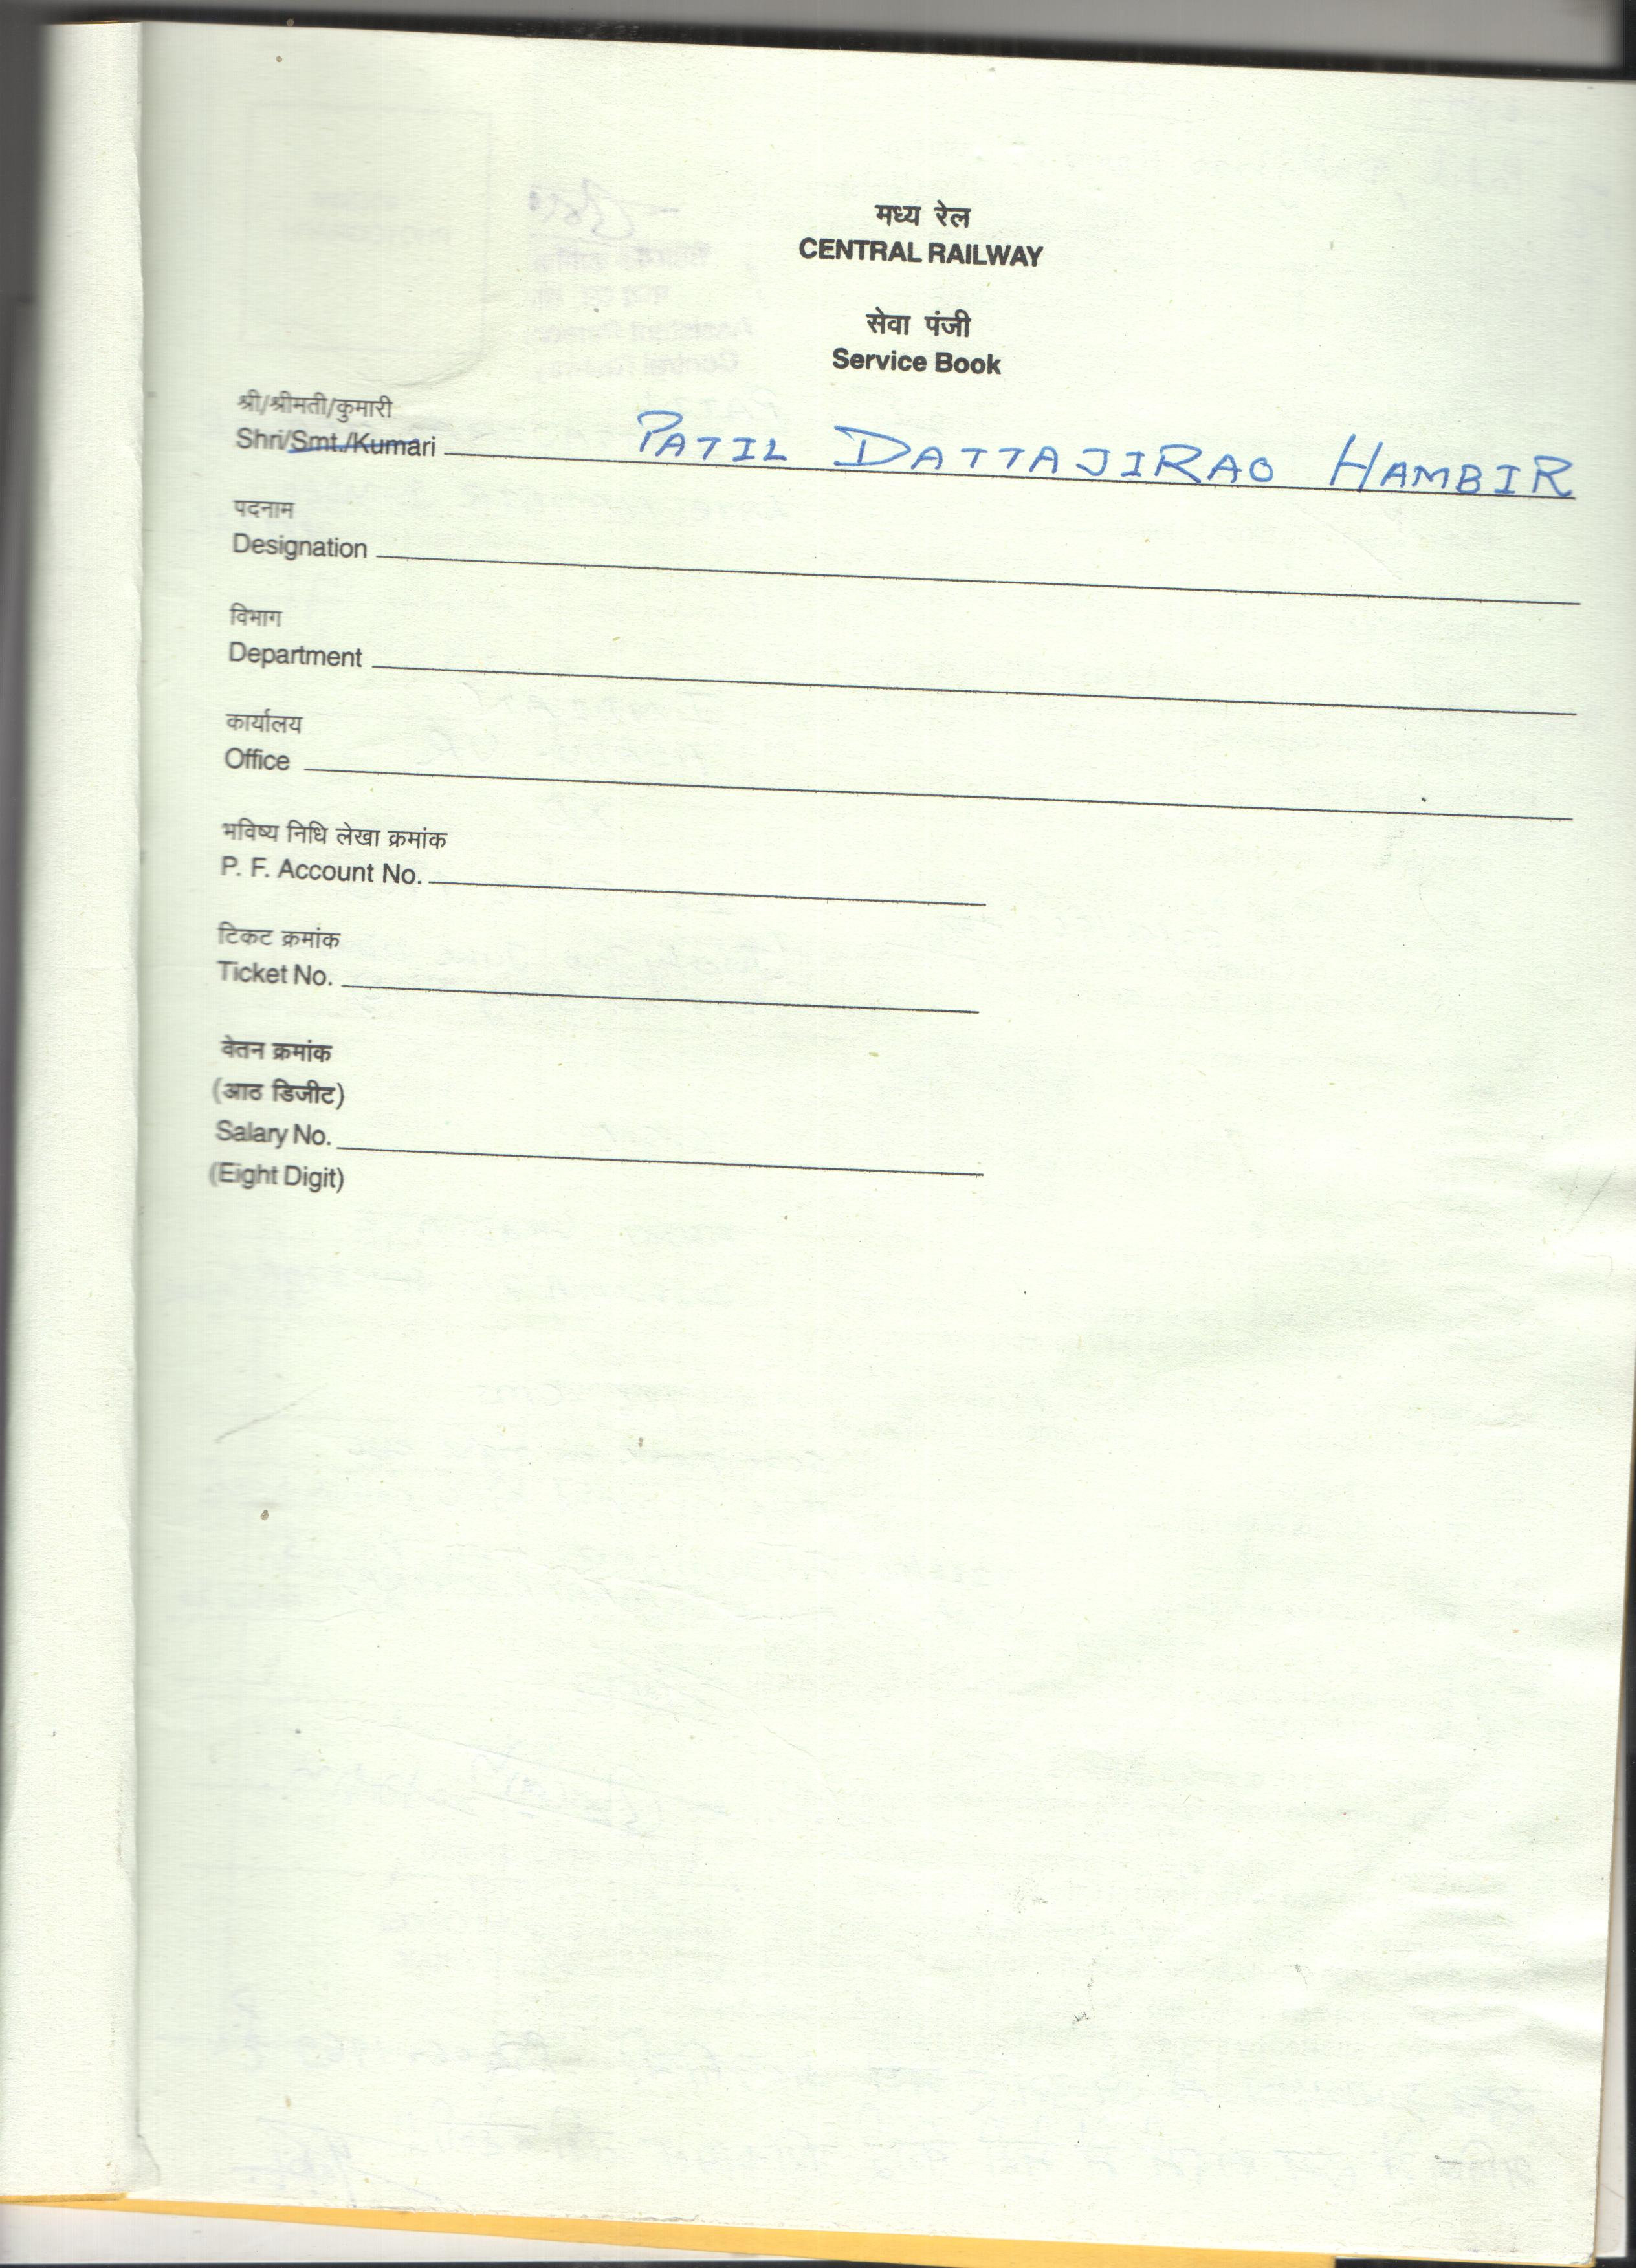 मध्य रेल
CENTRAL RAILWAY
सेवा पंजी
Service Book
श्री/श्रीमती/कुमारी
Shri/Smt./Kumari PATIL DATTAJIRAO HAMBIR
पदनाम
Designation
विभाग
Department
कार्यालय
Office
भविष्य निधि लेखा क्रमांक
P. F. Account No.
टिकट क्रमांक
Ticket No.
वेतन क्रमांक
(आठ डिजीट)
Salary No.
(Eight Digit)